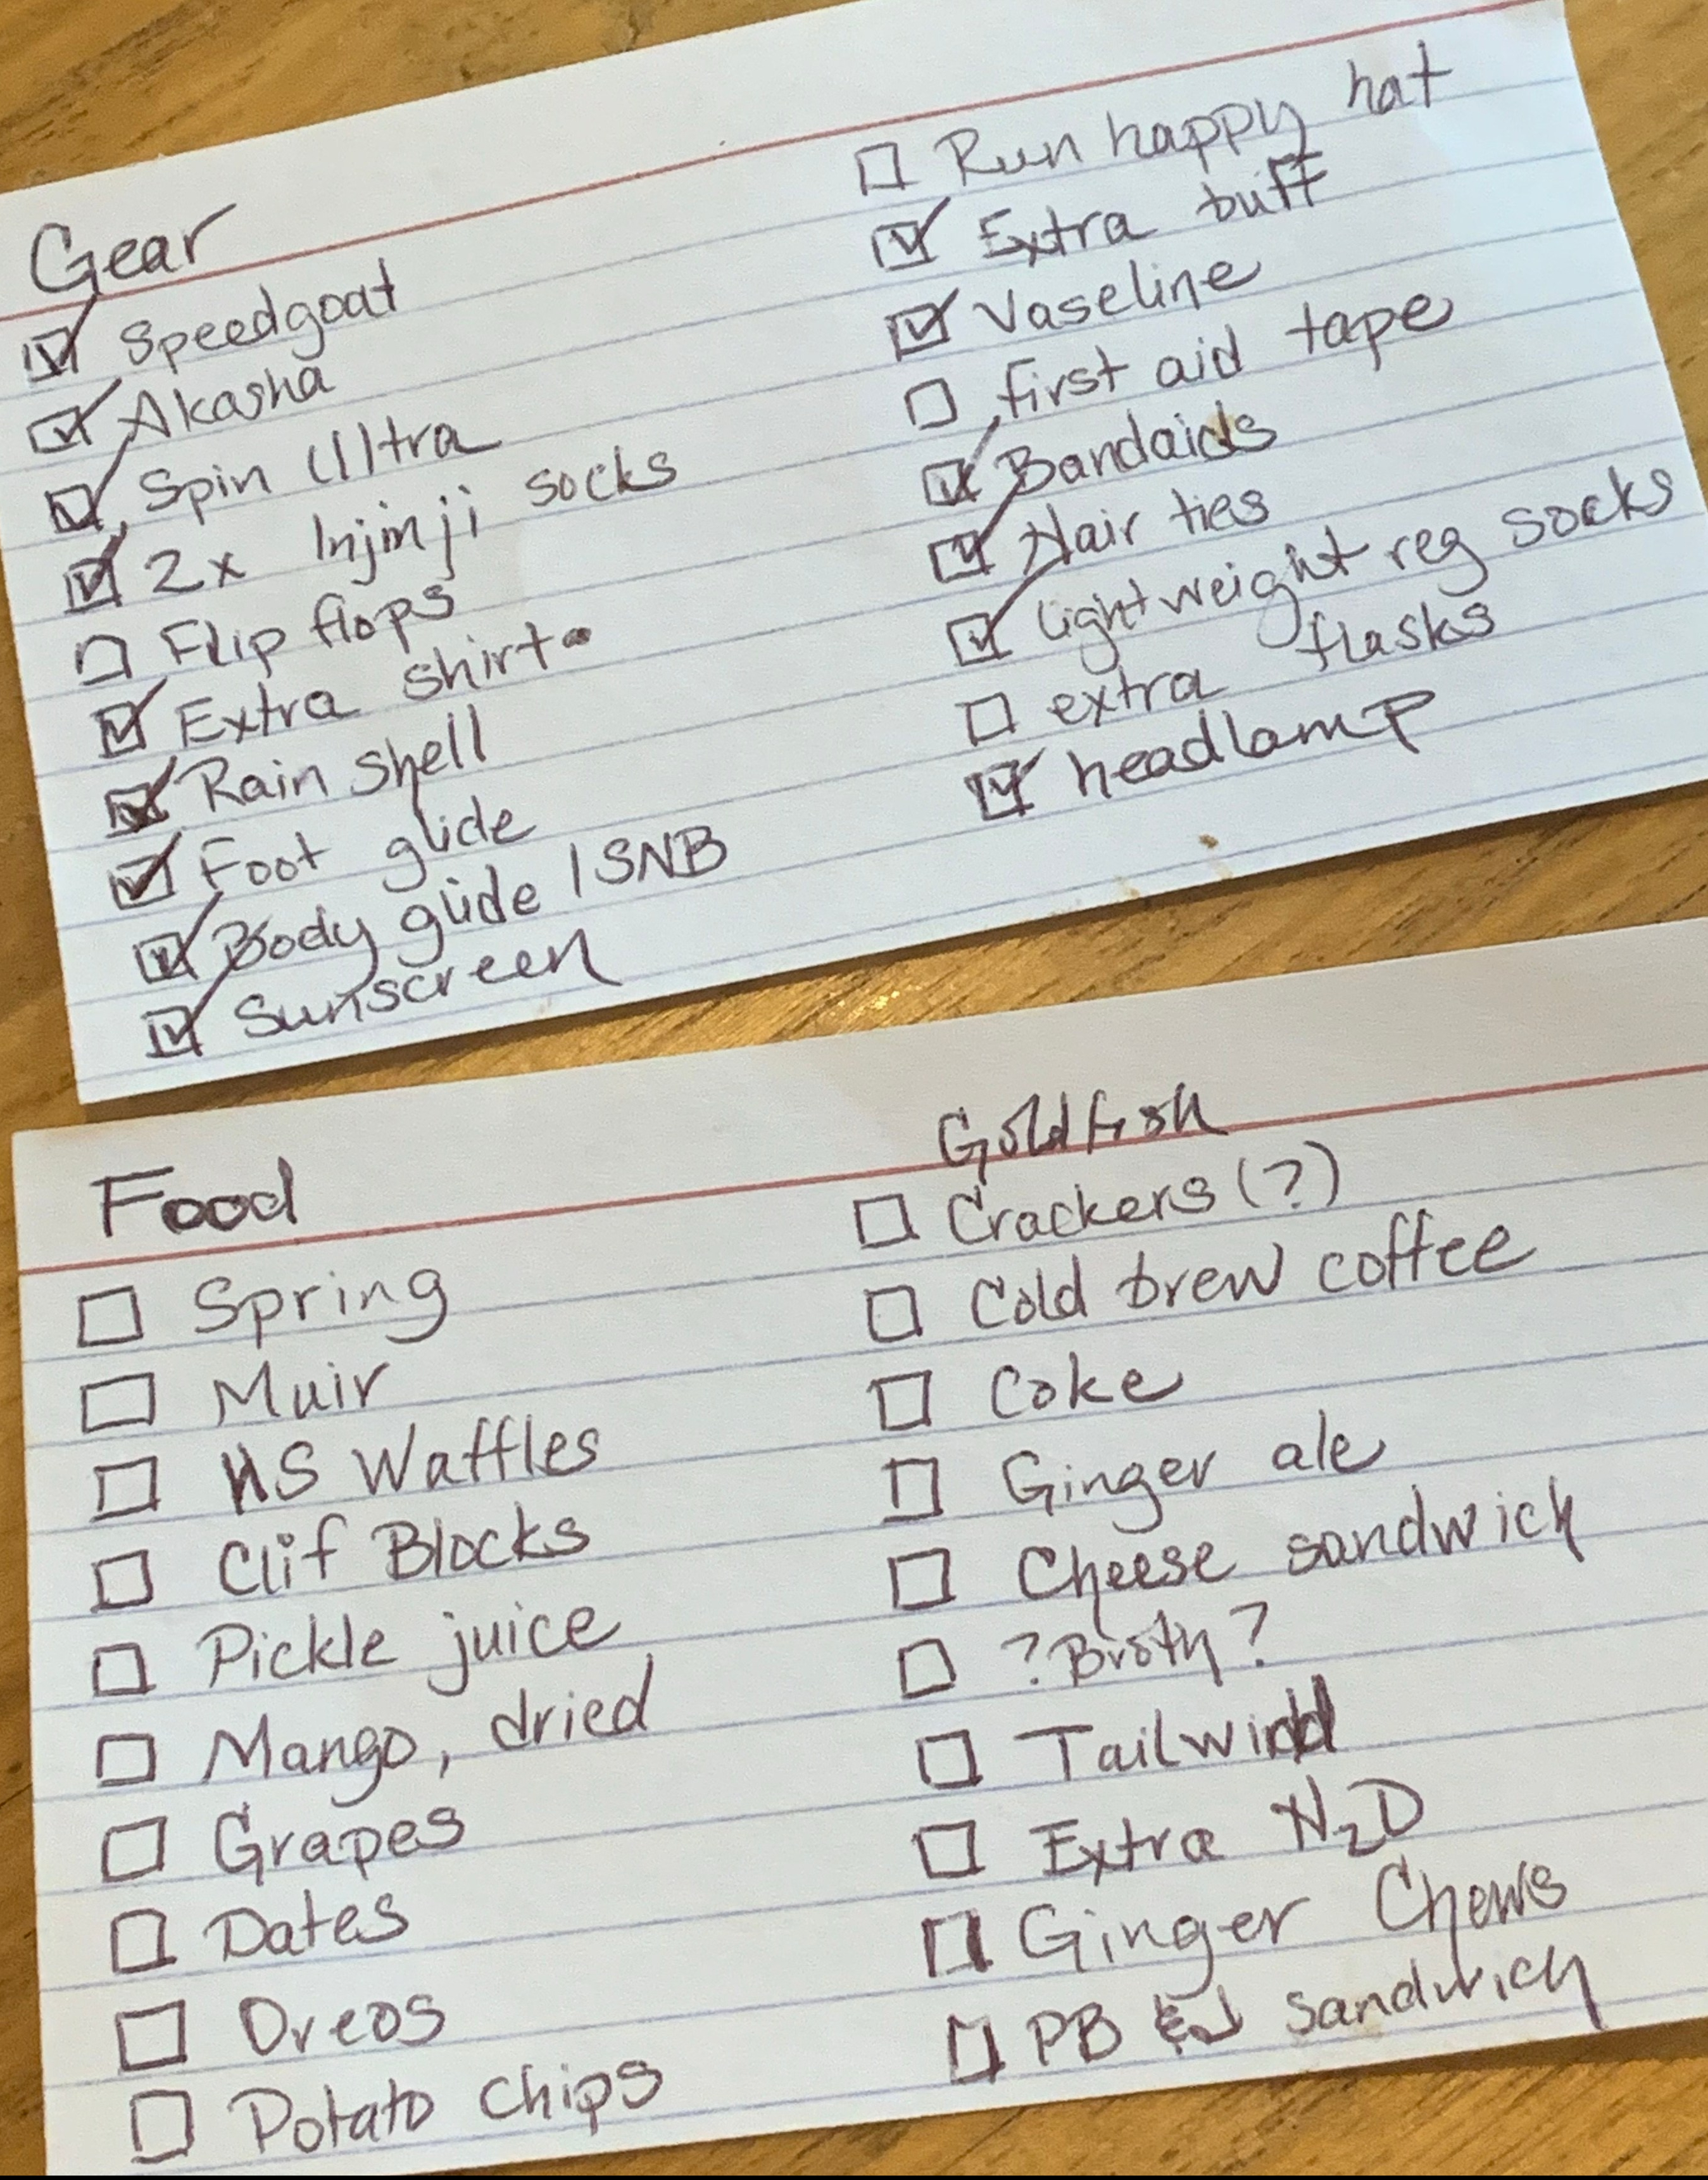 Gear
☑ Speedgoat
☑ Akasha
☑ Spin Ultra
☑ 2x Injinji socks
☐ Flip flops
☑ Extra shirt
☑ Rain shell
☑ Foot glide
☑ Body glide / SNB
☑ Sunscreen
☐ Run happy hat
☑ Extra buff
☑ Vaseline
☐ first aid tape
☑ Bandaids
☑ Hair ties
☑ lightweight reg socks
☐ extra flasks
☑ headlamp
Food
☐ Spring
☐ Muir
☐ HS Waffles
☐ Clif Blocks
☐ Pickle juice
☐ Mango, dried
☐ Grapes
☐ Dates
☐ Oreos
☐ Potato chips
Goldfish
☐ Crackers (?)
☐ Cold brew coffee
☐ Coke
☐ Ginger ale
☐ Cheese sandwich
☐ ? Broth ?
☐ Tailwind
☐ Extra H₂O
☐ Ginger Chews
☐ PB & J sandwich